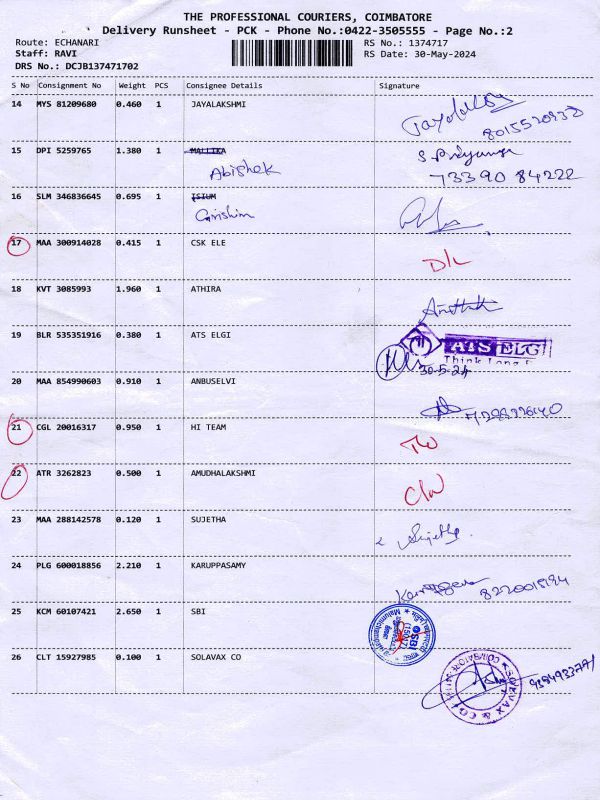 THE PROFESSIONAL COURIERS, COIMBATORE
Delivery Runsheet - PCK - Phone No.:0422-3505555 - Page No.:2
Route: ECHANARI RS No.: 1374717
Staff: RAVI RS Date: 30-May-2024
DRS No.: DCJB137471702
S No Consignment No Weight PCS Consignee Details Signature
14 MYS 81209680 0.460 1 JAYALAKSHMI
Jayalakshmi
15 DPI 5259765 1.380 1 MALLIKA S Priyanga
Abishek 73390 84222
16 SLM 346836645 0.695 1 ISIUM
17 MAA 300914028 0.415 1 CSK ELE
D/L
18 KVT 3085993 1.960 1 ATHIRA
19 BLR 535351916 0.380 1 ATS ELGI
ATS ELGI
30-5-24
20 MAA 854990603 0.910 1 ANBUSELVI
21 CGL 20016317 0.950 1 HI TEAM
22 ATR 3262823 0.500 1 AMUDHALAKSHMI
23 MAA 288142578 0.120 1 SUJETHA
Sujetha
24 PLG 600018856 2.210 1 KARUPPASAMY
25 KCM 60107421 2.650 1 SBI
SBI
26 CLT 15927985 0.100 1 SOLAVAX CO
SOLVAX & CO